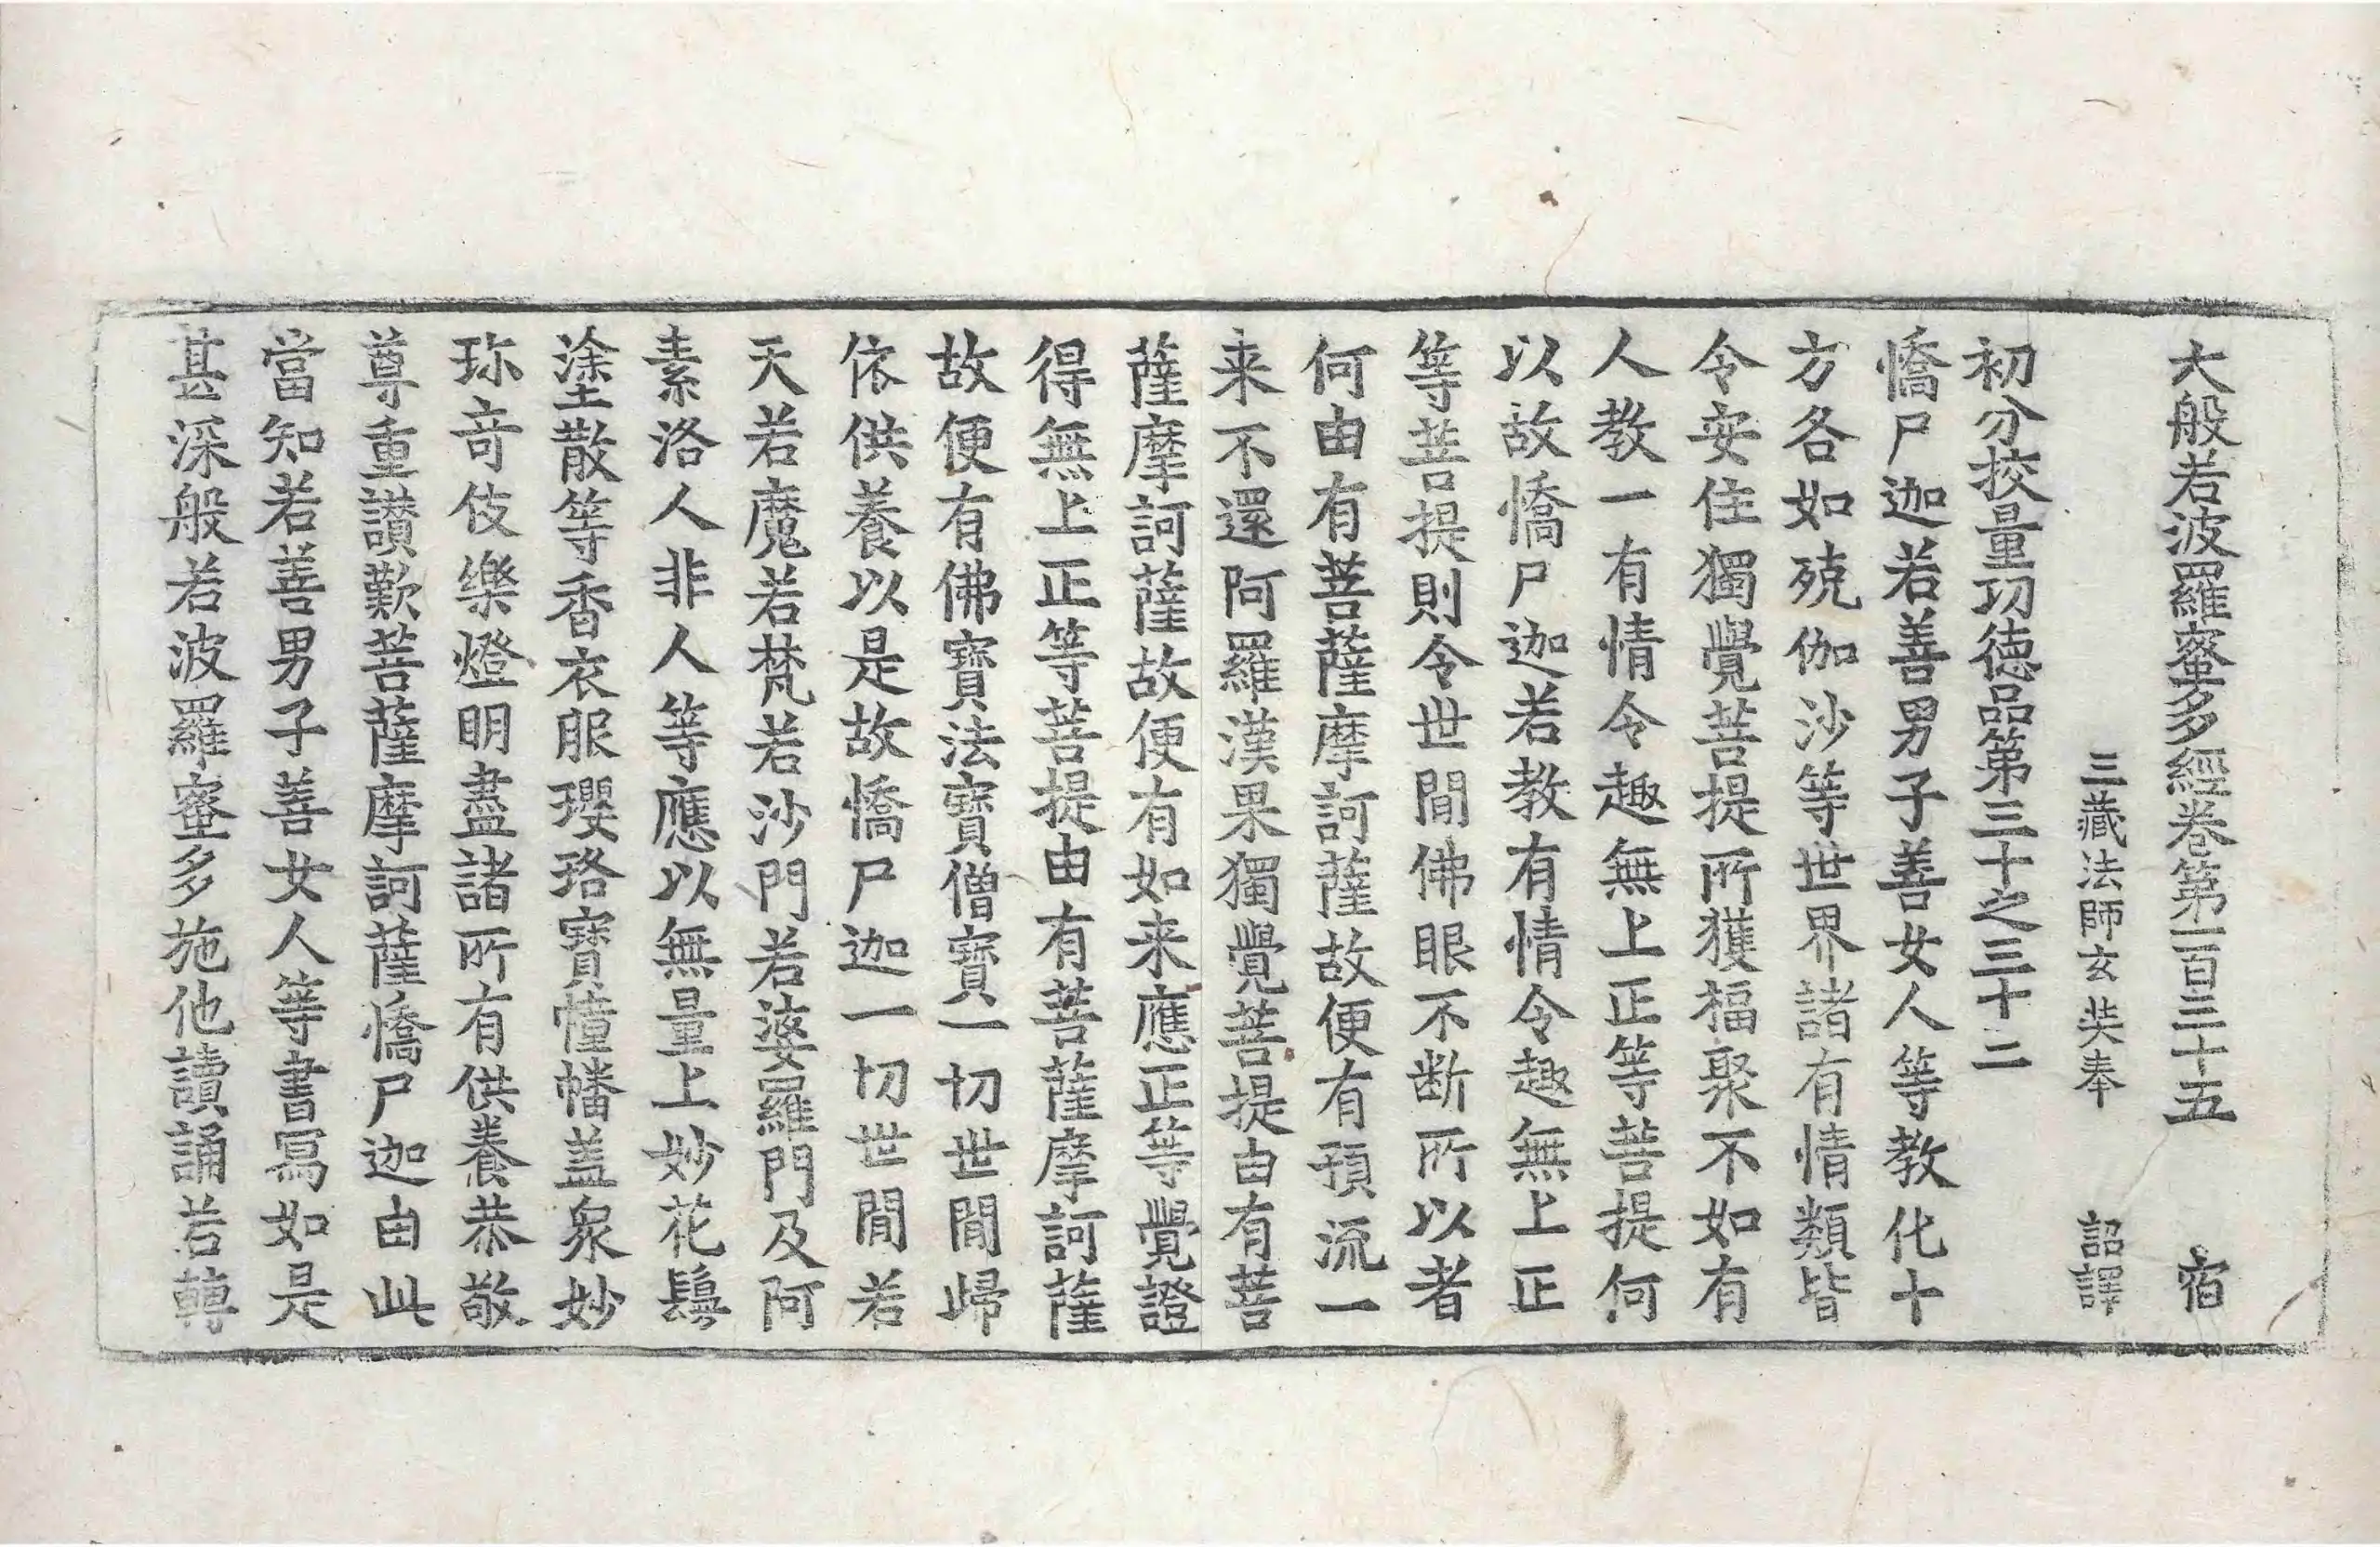 大般若波羅蜜多經卷第一百三十五 宿
三藏法師玄奘奉 詔譯
初分挍量功德品第三十之三十三
憍尸迦若善男子善女人等教化十
方各如殑伽沙等世界諸有情類皆
令安住獨覺菩提所獲福聚不如有
人教一有情令趣無上正等菩提何
以故憍尸迦若教有情令趣無上正
等菩提則令世間佛眼不断所以者
何由有菩薩摩訶薩故便有預流一
来不還阿羅漢果獨覺菩提由有菩
薩摩訶薩故便有如来應正等覺證
得無上正等菩提由有菩薩摩訶薩
故便有佛寶法寶僧寶一切世間歸
依供養以是故憍尸迦一切世間若
天若魔若梵若沙門若婆羅門及阿
素洛人非人等應以無量上妙花鬘
塗散等香衣服瓔珞寶幢幡盖衆妙
珎竒伎樂燈明盡諸所有供養恭敬
尊重讃歎菩薩摩訶薩憍尸迦由此
當知若善男子善女人等書寫如是
甚深般若波羅蜜多施他讀誦若轉